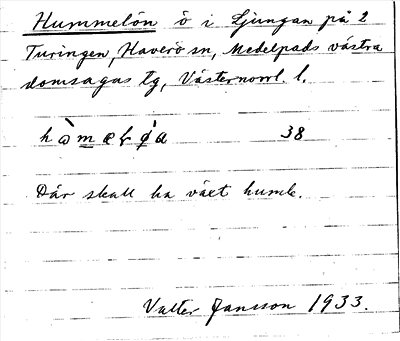 Hummelön ö i Ljungan på 2
Turingen, Haverö sn, Medelpads västra
domsagas tg, Västernorrl. l.
38
Där skall ha växt humle.
Valter Jansson 1933.